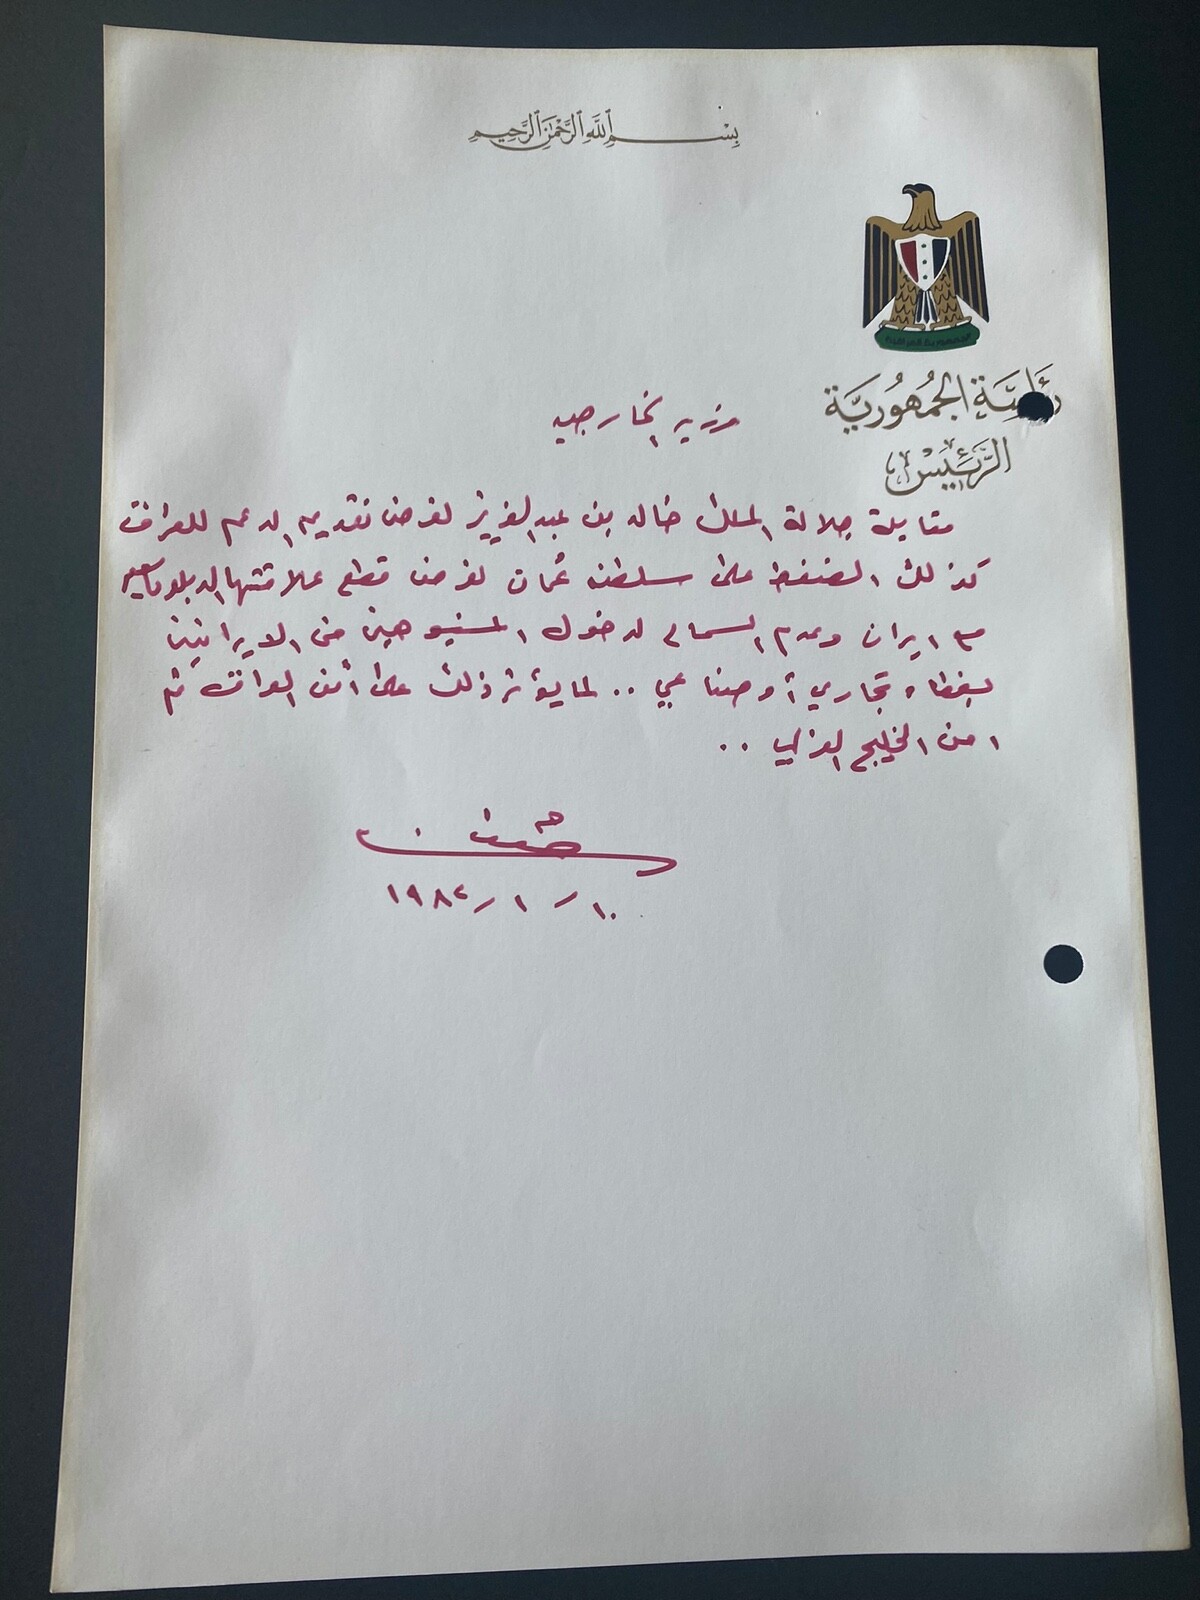 بِسْمِ اللهِ الرَّحْمٰنِ الرَّحِيمِ
رئاسَة الجُمهُوريَّة
الرَّئيسْ
وزير الخارجيه
مقابلة جلالة الملك خالد بن عبد العزيز لغرض تقديم الدعم للعراق
كذلك الضغط على سلطنه عُمان لغرض قطع علاقتها الدبلوماسيه
مع ايران وعدم السماح لدخول المشبوهين من الايرانين
بغطاء تجاري أو صناعي .. لما يؤثر ذلك على أمن العراق ثم
امن الخليج العربي ..
١٠ / ١ / ١٩٨٢